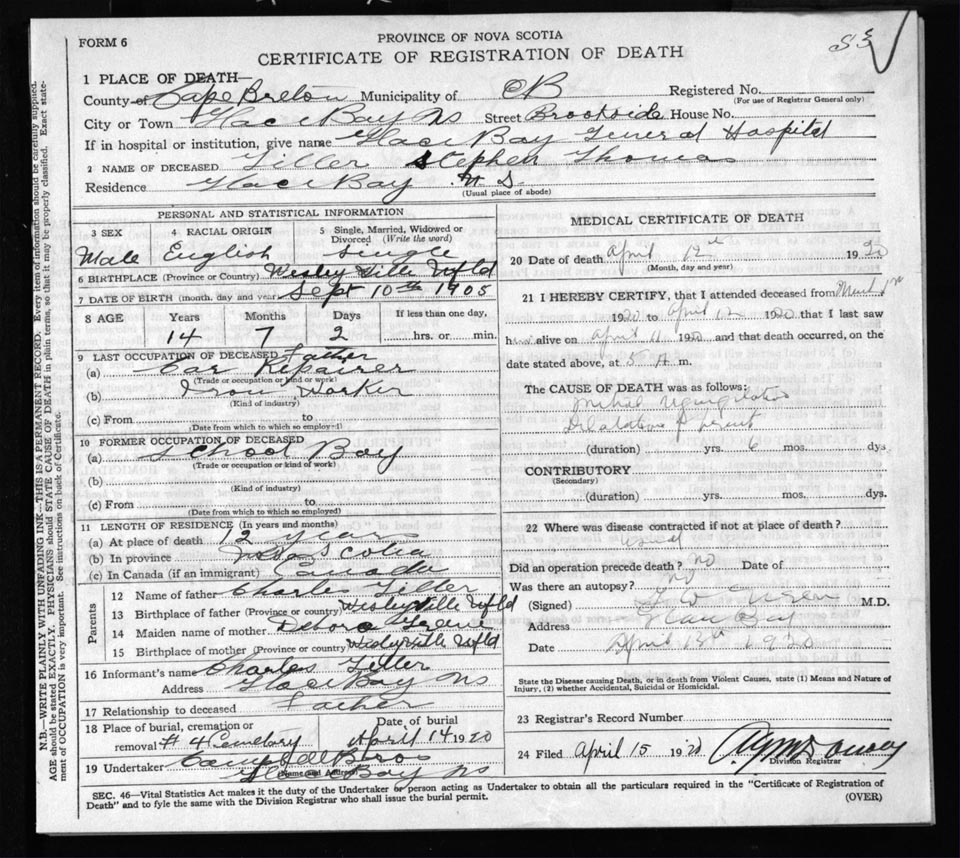 FORM 6
PROVINCE OF NOVA SCOTIA
CERTIFICATE OF REGISTRATION OF DEATH
1 PLACE OF DEATH—
County of Cape Breton Municipality of CB Registered No.
(For use of Registrar General only)
City or Town Glace Bay NS Street Brookside House No.
If in hospital or institution, give name Glace Bay General Hospital
2 NAME OF DECEASED Tiller Stephen Thomas
Residence Glace Bay N.S.
(Usual place of abode)
PERSONAL AND STATISTICAL INFORMATION
3 SEX 4 RACIAL ORIGIN 5 Single, Married, Widowed or Divorced (Write the word)
Male English Single
6 BIRTHPLACE (Province or Country) Wesleyville Nfld
7 DATE OF BIRTH (month, day and year) Sept 10th 1905
8 AGE Years Months Days If less than one day,
14 7 2 hrs. or min.
9 LAST OCCUPATION OF DECEASED Father
(a) Car Repairer
(Trade or occupation or kind or work)
(b) Iron Worker
(Kind of industry)
(c) From to
(Date from which to which so employed)
10 FORMER OCCUPATION OF DECEASED
(a) School Boy
(Trade or occupation or kind of work)
(b)
(Kind of industry)
(c) From to
(Date from which to which so employed)
11 LENGTH OF RESIDENCE (In years and months)
(a) At place of death 12 years
(b) In province Nova Scotia
(c) In Canada (if an immigrant) Canada
Parents
12 Name of father Charles Tiller
13 Birthplace of father (Province or country) Wesleyville Nfld
14 Maiden name of mother Debora
15 Birthplace of mother (Province or country) Nfld
16 Informant's name Charles Tiller
Address Glace Bay NS
17 Relationship to deceased Father
18 Place of burial, cremation or removal # 4 Cemetary Date of burial April 14 1920
19 Undertaker Campbell Bros
(Name and Address) Glace Bay NS
MEDICAL CERTIFICATE OF DEATH
20 Date of death April 12th 1920
(Month, day and year)
21 I HEREBY CERTIFY, that I attended deceased from March 1st
1920 to April 12 1920 that I last saw
him alive on April 11 1920 and that death occurred, on the
date stated above, at 5 A m.
The CAUSE OF DEATH was as follows:
Mitral regurgitation
Dilatation of heart
(duration) yrs. 6 mos. dys.
CONTRIBUTORY
(Secondary)
(duration) yrs. mos. dys.
22 Where was disease contracted if not at place of death?
Did an operation precede death? no Date of
Was there an autopsy? no
(Signed) M.D.
Address Glace Bay
Date April 13th 1920
State the Disease causing Death, or in death from Violent Causes, state (1) Means and Nature of
Injury, (2) whether Accidental, Suicidal or Homicidal.
23 Registrar's Record Number
24 Filed April 15 19
Division Registrar
SEC. 46—Vital Statistics Act makes it the duty of the Undertaker or person acting as Undertaker to obtain all the particulars required in the "Certificate of Registration of
Death" and to fyle the same with the Division Registrar who shall issue the burial permit.
(OVER)
N.B.—WRITE PLAINLY WITH UNFADING INK—THIS IS A PERMANENT RECORD. Every item of information should be carefully supplied.
AGE should be stated EXACTLY. PHYSICIANS should STATE CAUSE OF DEATH in plain terms, so that it may be properly classified. Exact state-
ment of OCCUPATION is very important. See instructions on back of Certificate.